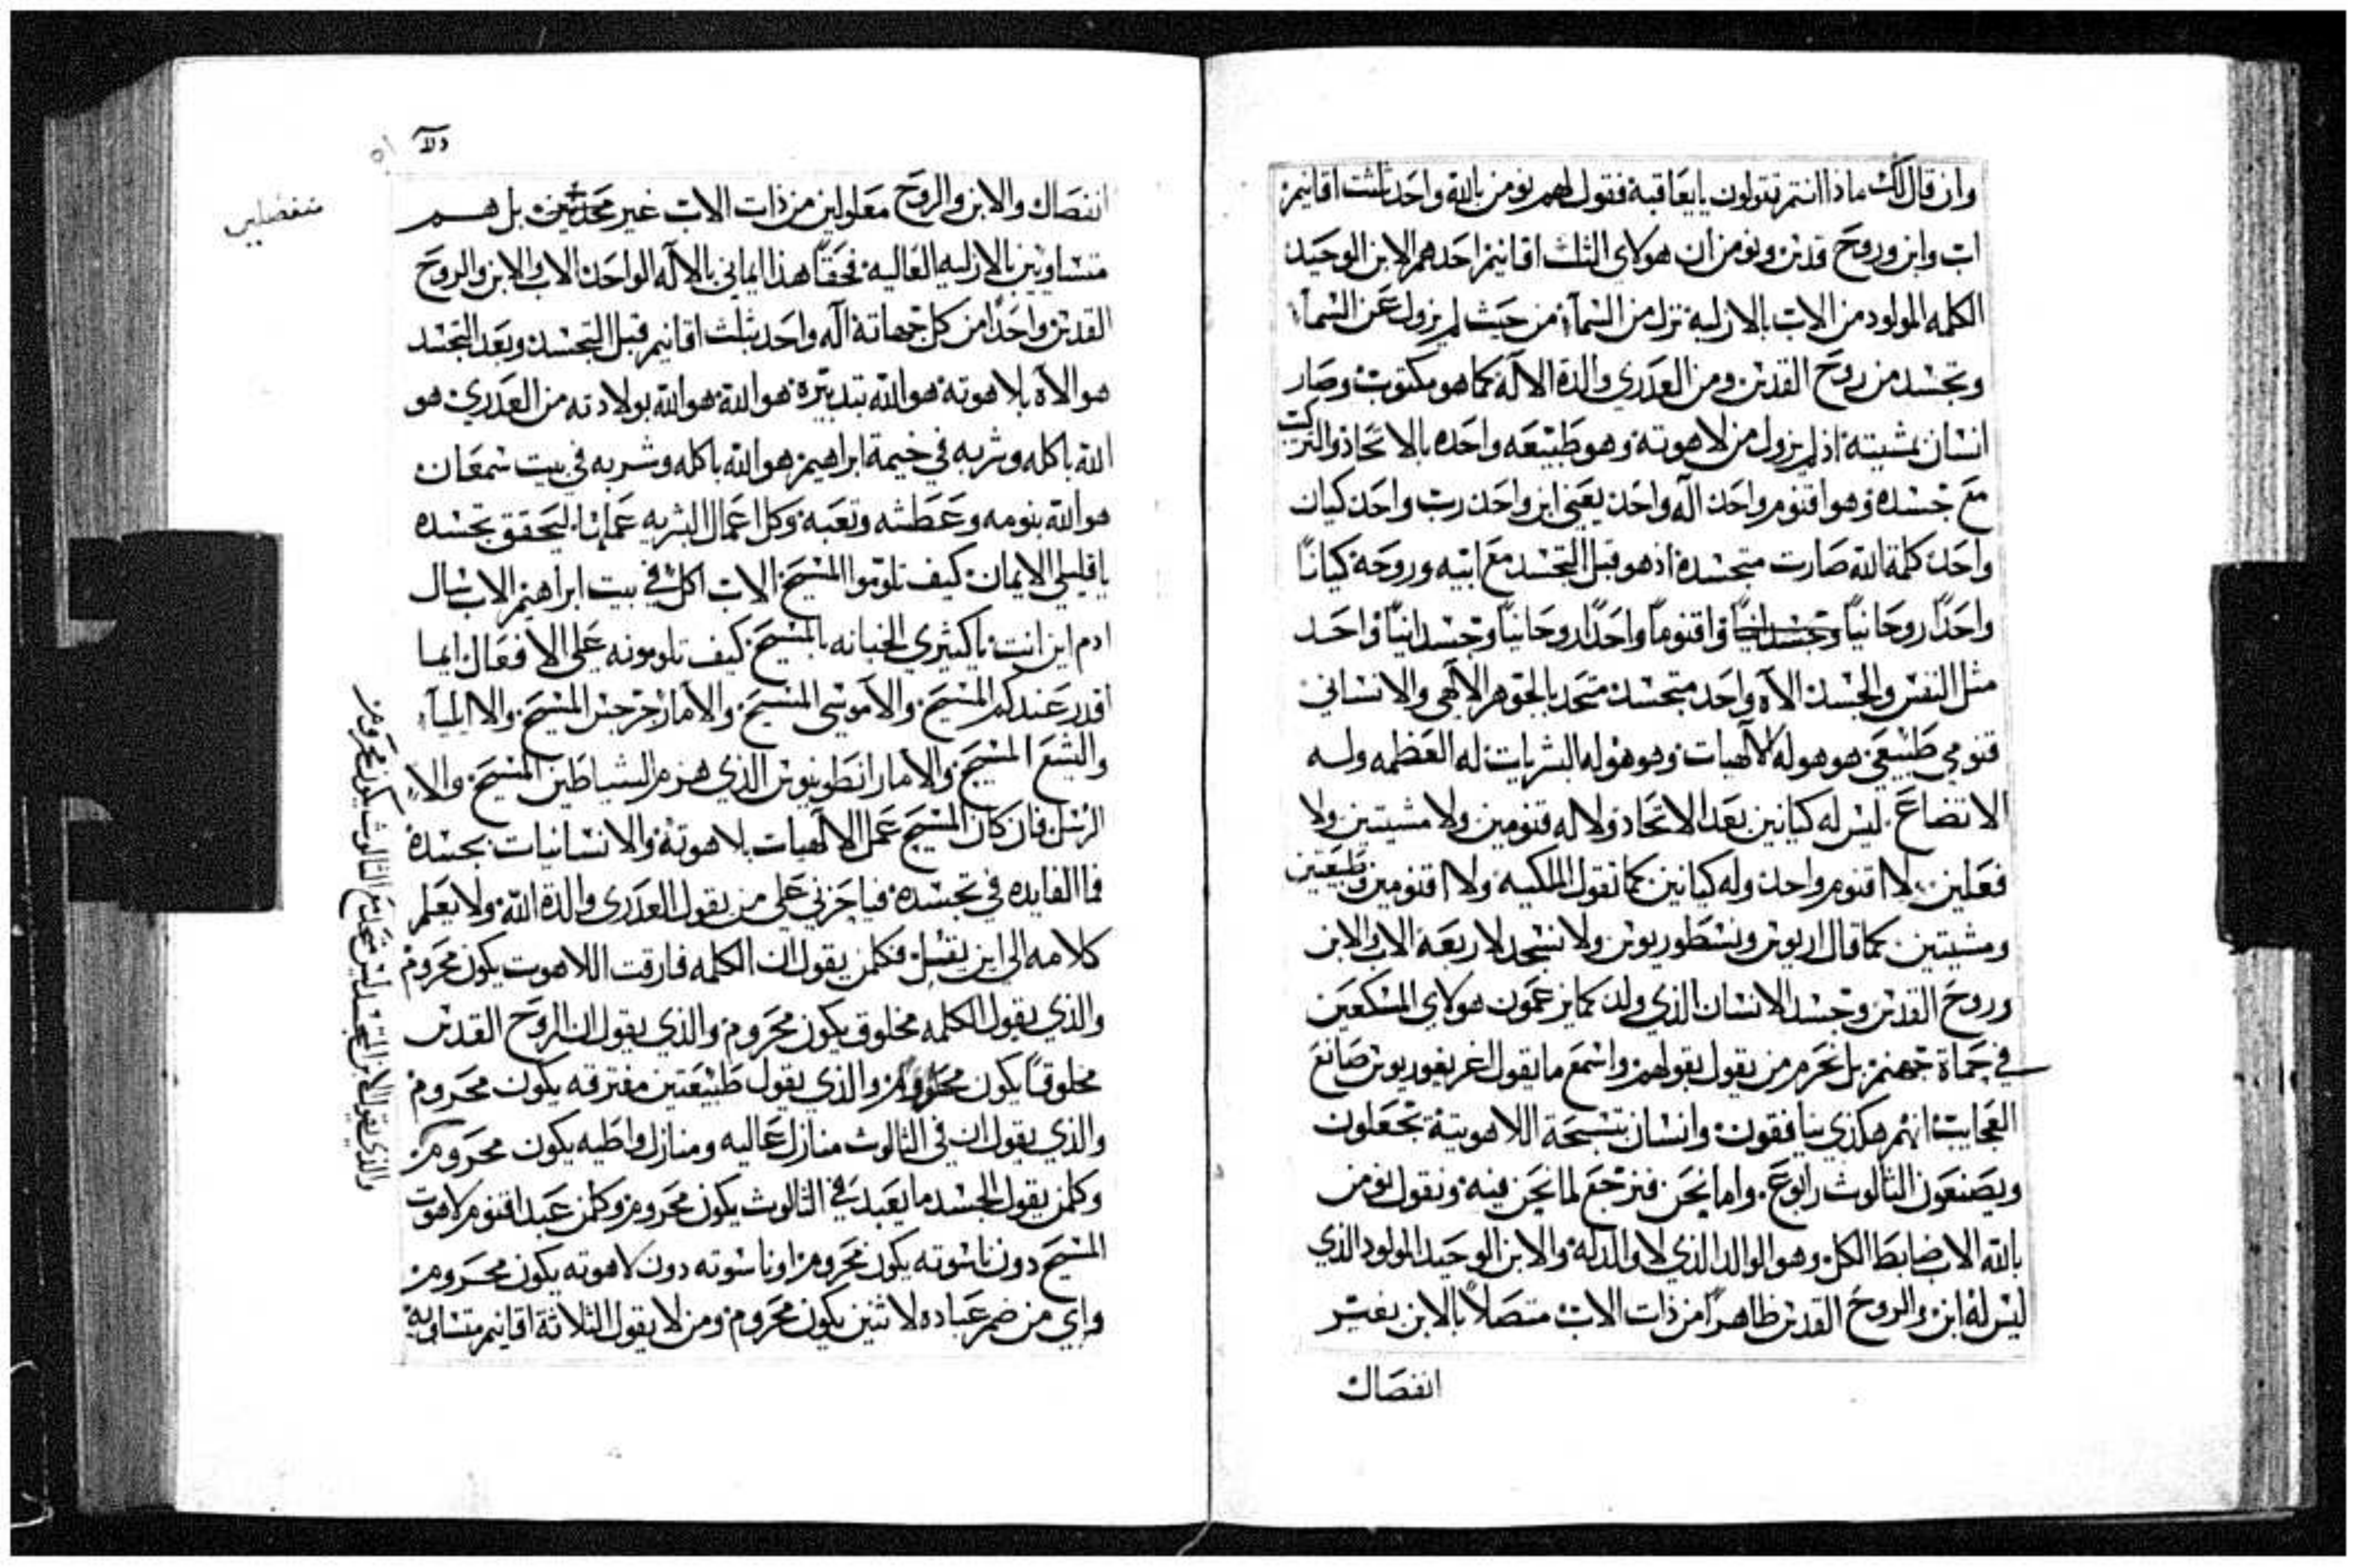 وان قال لك ماذا انتم تقولون يا يعاقبة فقول لهم نومن بالله واحد بثلث اقانيم
اب وابن وروح قدس ونومن ان هولاي الثلث اقانيم احدهم الابن الوحيد
الكلمه المولود من الاب بالازلية نزل من السمآء من حيث لم يزول عن السمآء
وتجسد من روح القدس ومن العدري والدة الالآه كما هو مكتوب وصار
انسان بمشيته اذ لم يزول من لاهوته وهو طبيعه واحده بالاتحاد والتركيب
مع جسده وهو اقنوم واحد اله واحد يعني ابن واحد رب واحد كيان
واحد كلمة الله صارت متجسدة اذ هو قبل التجسد مع ابيه وروحه كيانًا
واحدًا روحانيًا واقنومًا واحدًا روحانيًا وجسدانيًا واحد
مثل النفس والجسد الآه واحد متجسد متحد بالجوهر الآلهي والانساني
قنومي طبيعي هو هو له الآلهيات وهو هو له البشريات له العظمه وله
الاتضاع ليس له كيانين بعد الاتحاد ولا له قنومين ولا مشيتين ولا
فعلين لا اقنوم واحد وله كيانين كما تقول الملكية ولا اقنومين وطبيعتين
ومشيتين كما قال اريوس ونسطوريوس ولا نسجد لاربعة الاب والابن
وروح القدس وجسد الانسان الذي ولد كما يزعمون هولاي المسكعين
في حماة جهنم بل نحرم من يقول بقولهم واسمع ما يقول اغريغوريوس صانع
العجايب انهم هكذي ينافقون وانسان بتسبحة اللاهوتية تجعلون
ويصنعون الثالوث رابوع واما نحن فنرجع لما نحن فيه ونقول نومن
بالله الاب ضابط الكل وهو الوالد الذي لا والد له والابن الوحيد المولود الذي
ليس له ابن والروح القدس ظاهرًا من ذات الاب متصلًا بالابن بغير
انفصال
انفصال والابن والروح معلولين من ذات الاب غير محدثين بل هم
منفصلين
متساويين بالازليه العاليه فحقًا هذا ايماني بالآله الواحد الاب والابن والروح
القدس واحدًا من كل جهاته آله واحد بثلث اقانيم قبل التجسد وبعد التجسد
هو الآه بلاهوته هو الله بتدبيره هو الله هو الله بولادته من العدري هو
الله باكله وشربه في خيمة ابراهيم هو الله باكله وشربه في بيت شمعان
هو الله بنومه وعطشه وتعبه وكل اعمال البشريه عملها ليحقق تجسده
يا قليلي الايمان كيف تلوموا المسيح الاب اكل في بيت ابراهيم الاب سال
ادم اين انت يا كثيري الخيانه بالمسيح كيف تلومونه علي الافعال ايما
اقدر عندكم المسيح والا موسي المسيح والا مار جرجس المسيح والا ايليآء
واليشع المسيح والا مار انطونيوس الذي هزم الشياطين المسيح والا
الرسل فان كان المسيح عمل الآلهيات بلاهوته والانسانيات بجسده
فما الفايده في تجسده فيا حزني علي من يقول العدرى والدة الله ولا يعلم
كلامه الى اين يقبل فكلمن يقول ان الكلمه فارقت اللاهوت يكون محروم
والذي يقول الكلمه مخلوق يكون محروم والذي يقول ان الروح القدس
مخلوقًا يكون محروم والذي يقول طبيعتين مفترقه يكون محروم
والذي يقول ان في الثالوث منازل عاليه ومنازل واطيه يكون محروم
وكلمن يقول الجسد ما يعبد في الثالوث يكون محروم وكلمن عبد اقنوم لاهوت
المسيح دون ناسوته يكون محروم او ناسوته دون لاهوته يكون محروم
واي من ضم عباده لاثنين يكون محروم ومن لا يقول الثلاثة اقانيم متساويه
والذي يقول الابن المتجسد ليس متحد مع الثالوث يكون محروم